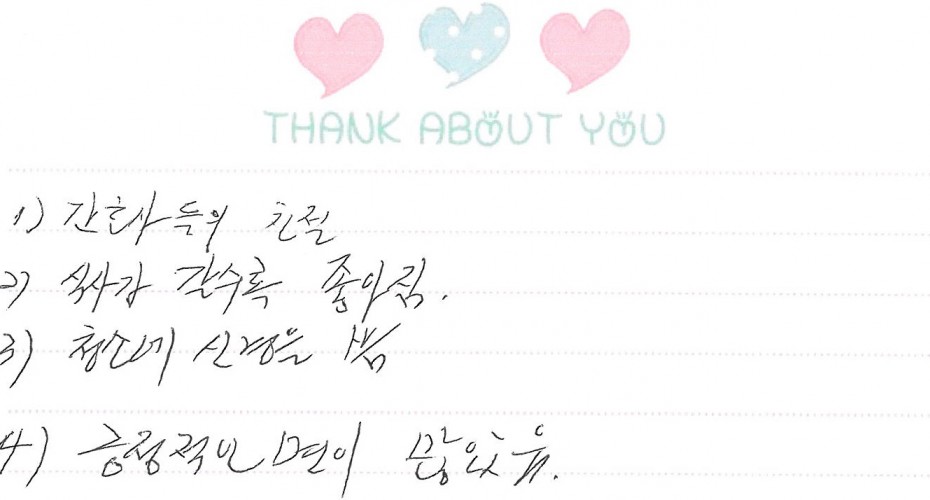 THANK ABOUT YOU
1) 간호사들의 친절
2) 식사가 갈수록 좋아짐.
3) 청소에 신경을 씀
4) 긍정적인 면이 많았음.